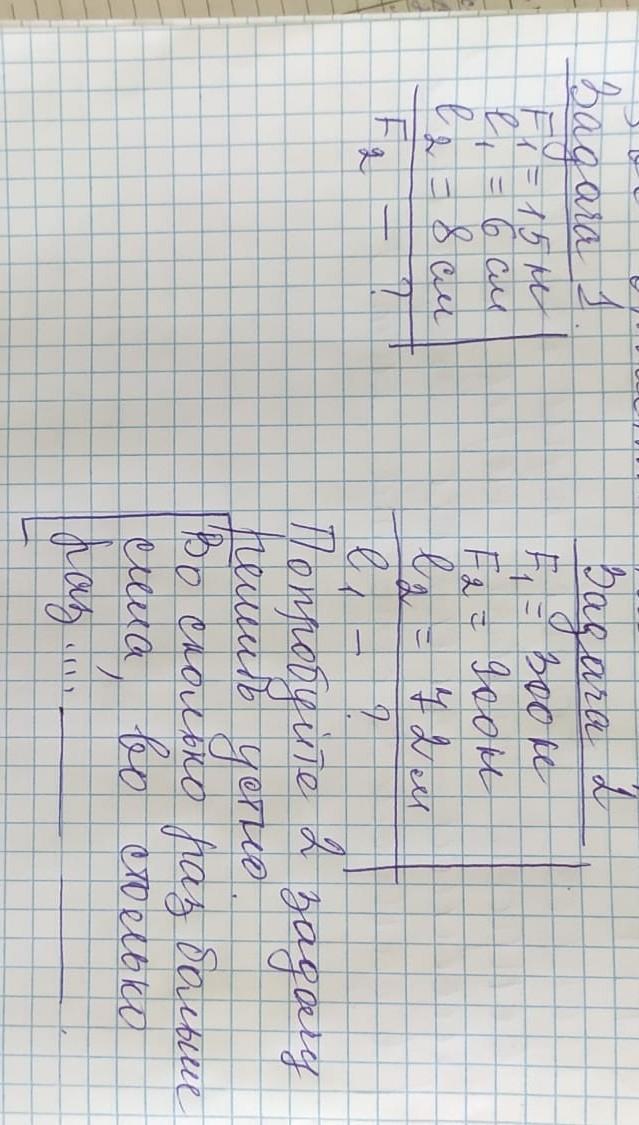 Задача 1.
F₁ = 15 н
ℓ₁ = 6 см
ℓ₂ = 8 см
F₂ – ?
Задача 2
F₁ = 300 н
F₂ = 900 н
ℓ₂ = 72 м
ℓ₁ – ?
Попробуйте 2 задачу
решить устно.
Во сколько раз больше
сила, во столько
раз ....